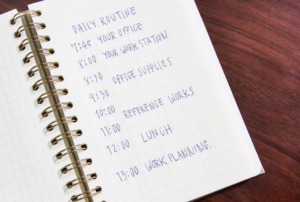 DAILY ROUTINE
7:45 YOUR OFFICE
8:00 YOUR WORKSTATION
8:30 OFFICE SUPPLIES
9:30
10:00 REFERENCE WORKS
11:00
12:00 LUNCH
13:00 WORK PLANNING.